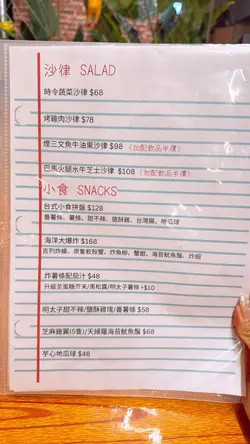 沙律 SALAD
時令蔬菜沙律 $68
烤雞肉沙律 $78
煙三文魚牛油果沙律 $98 (加配飲品半價)
巴馬火腿水牛芝士沙律 $108 (加配飲品半價)
小食 SNACKS
台式小食拼盤 $128
番薯條、薯條、甜不辣、鹽酥雞、台灣腸、地瓜球
海洋大爆炸 $168
吉列炸蠔、原隻軟殼蟹、炸魚柳、蟹鉗、海苔魷魚鬚、炸蝦
炸薯條配茄汁 $48
升級至蜜糖芥末/黑松露/明太子薯條 +$10
明太子甜不辣/鹽酥雞塊/番薯條 $58
芝麻雞翼(5隻)/天婦羅海苔魷魚鬚 $68
芋心地瓜球 $48